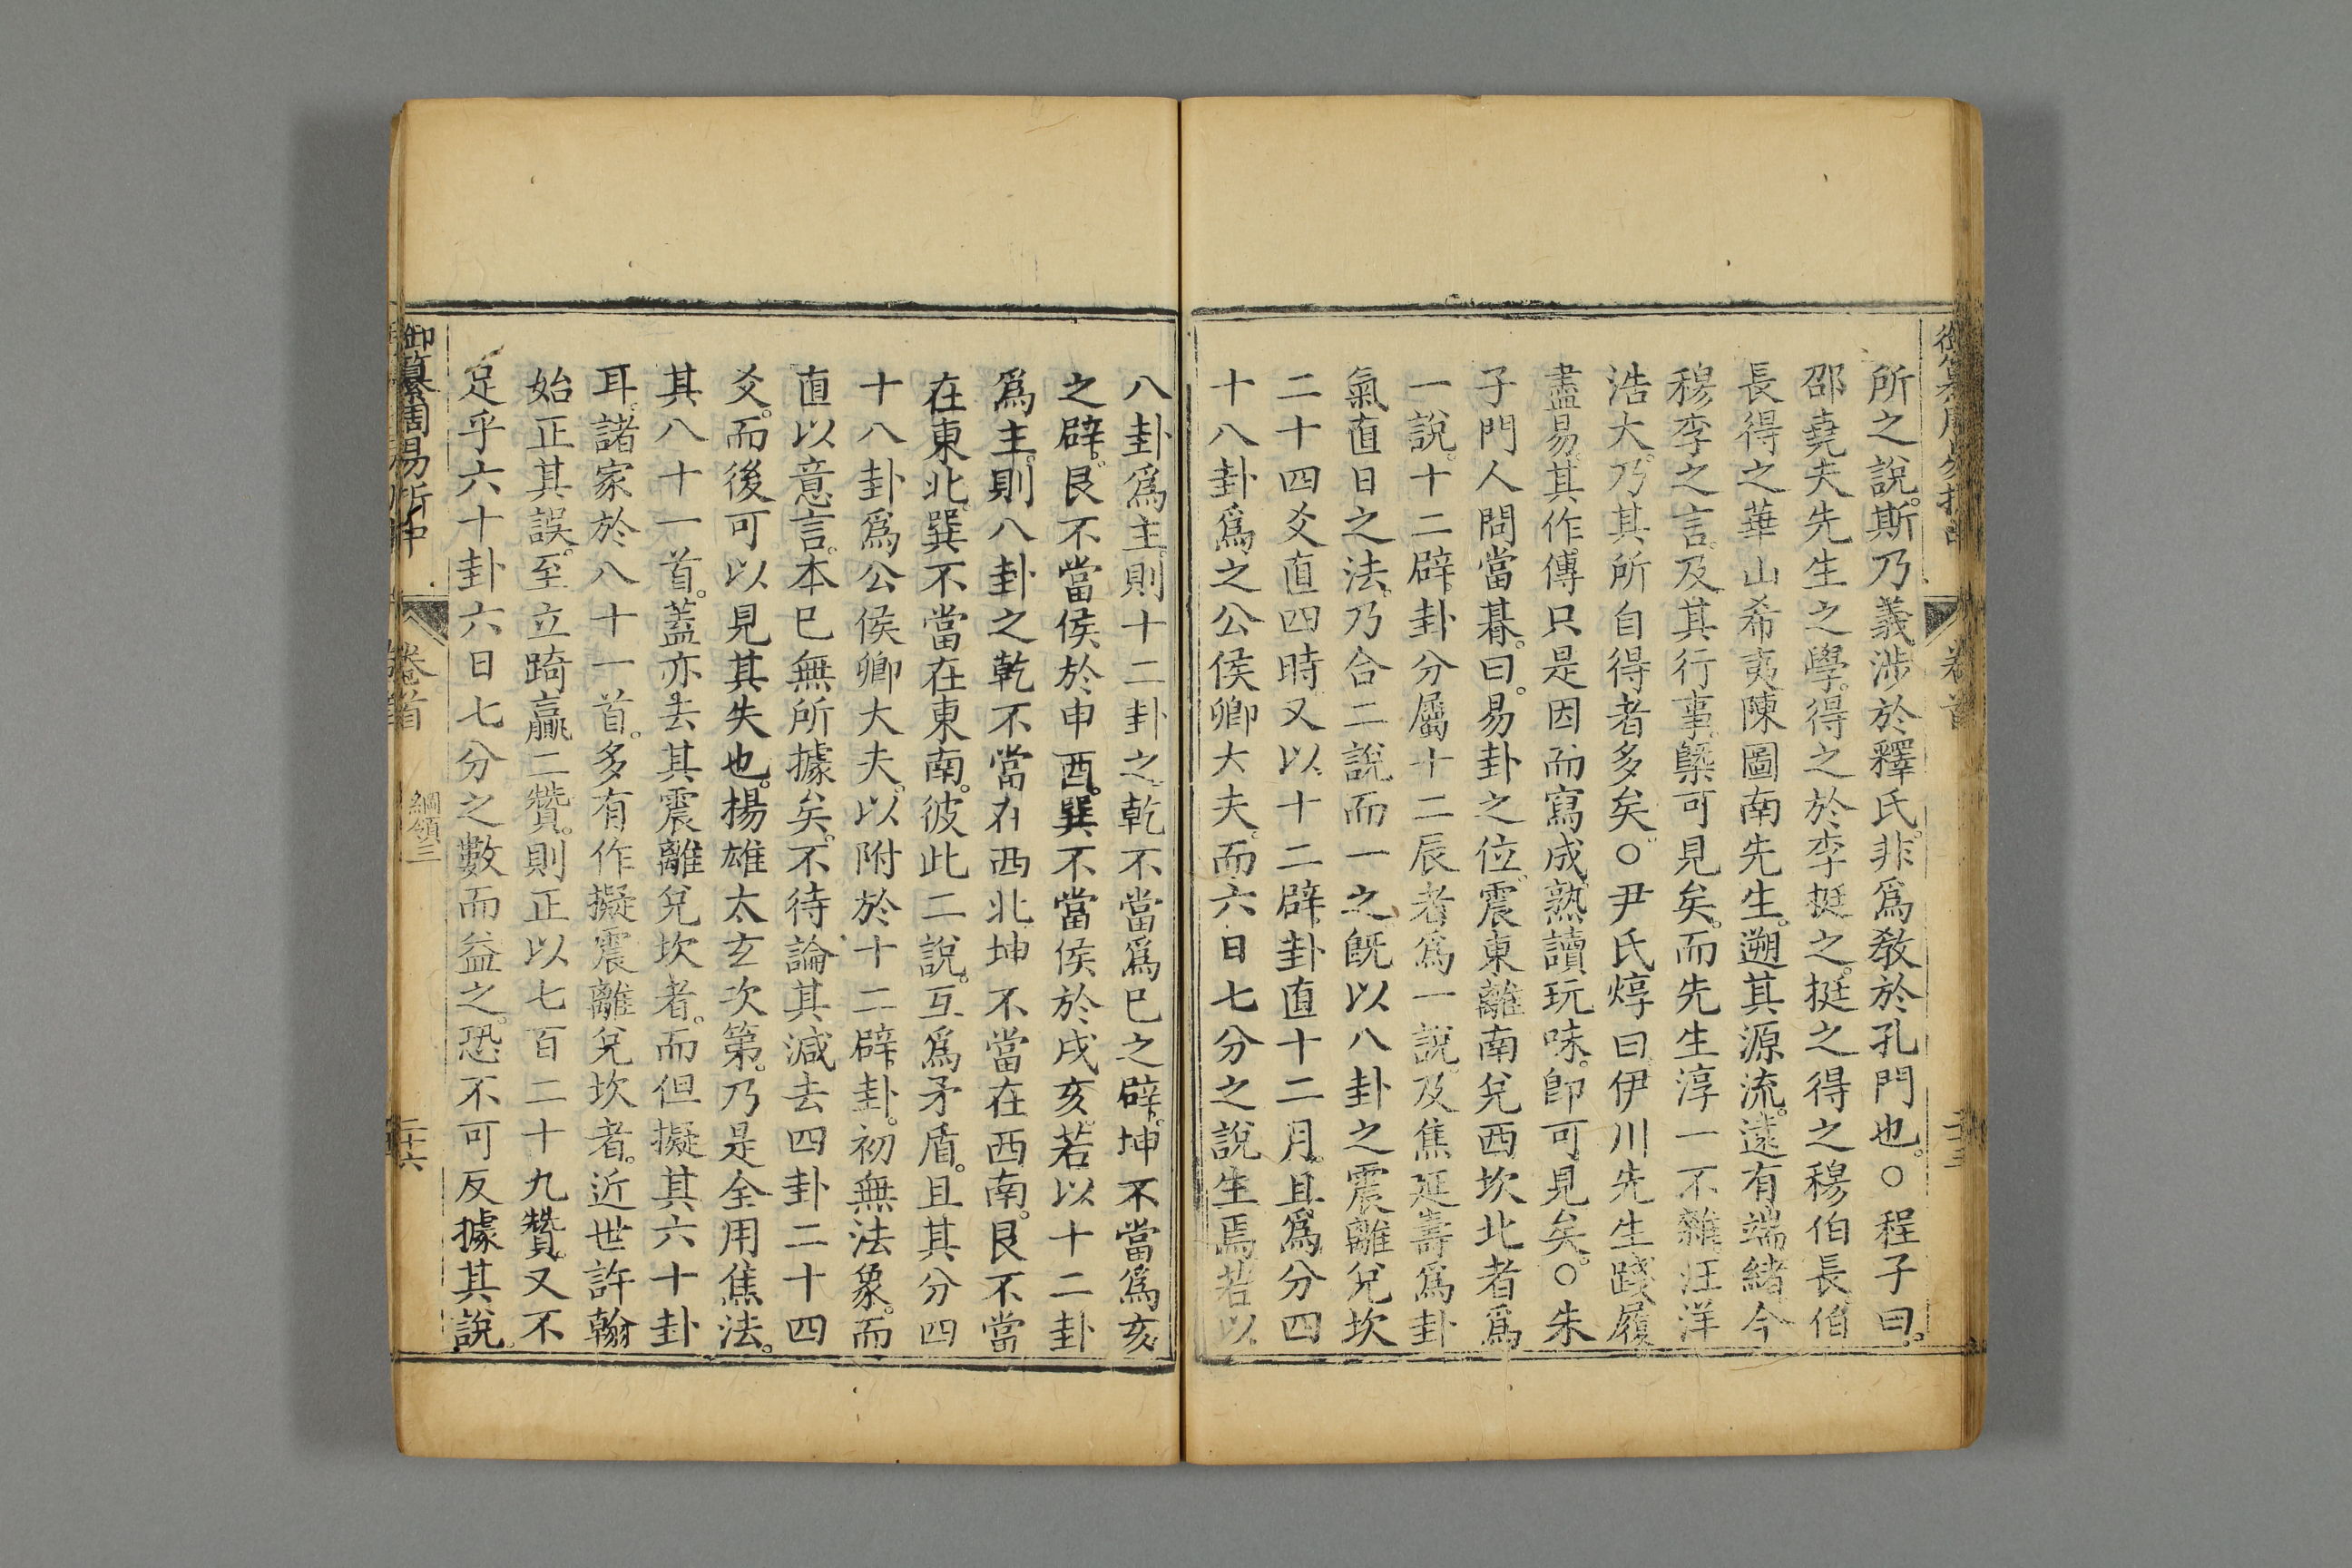 所之說。斯乃義涉於釋氏。非爲敎於孔門也。○程子曰。
邵堯夫先生之學。得之於李挺之。挺之得之穆伯長。伯
長得之華山希夷陳圖南先生。遡其源流。遠有端緖。今
穆李之言。及其行事。槩可見矣。而先生淳一不雜。汪洋
浩大。乃其所自得者多矣。○尹氏焞曰。伊川先生踐履
盡易。其作傳只是因而寫成。熟讀玩味。卽可見矣。○朱
子門人問當朞。曰。易卦之位。震東離南兌西坎北者爲
一說。十二辟卦分屬十二辰者爲一說。及焦延壽爲卦
氣直日之法。乃合二說而一之。旣以八卦之震離兌坎
二十四爻直四時。又以十二辟卦直十二月。且爲分四
十八卦爲之公侯卿大夫。而六日七分之說生焉。若以
八卦爲主。則十二卦之乾不當爲巳之辟。坤不當爲亥
之辟。艮不當侯於申酉。巽不當侯於戌亥。若以十二卦
爲主。則八卦之乾不當在西北。坤不當在西南。艮不當
在東北。巽不當在東南。彼此二說。互爲矛盾。且其分四
十八卦爲公侯卿大夫。以附於十二辟卦。初無法象。而
直以意言。本已無所據矣。不待論其減去四卦二十四
爻。而後可以見其失也。揚雄太玄次第。乃是全用焦法。
其八十一首。蓋亦去其震離兌坎者。而但擬其六十卦
耳。諸家於八十一首。多有作擬震離兌坎者。近世許翰
始正其誤。至立踦贏二贊。則正以七百二十九贊。又不
足乎六十卦六日七分之數而益之。恐不可反據其說。
御纂周易折中
卷首
綱領三
二十六